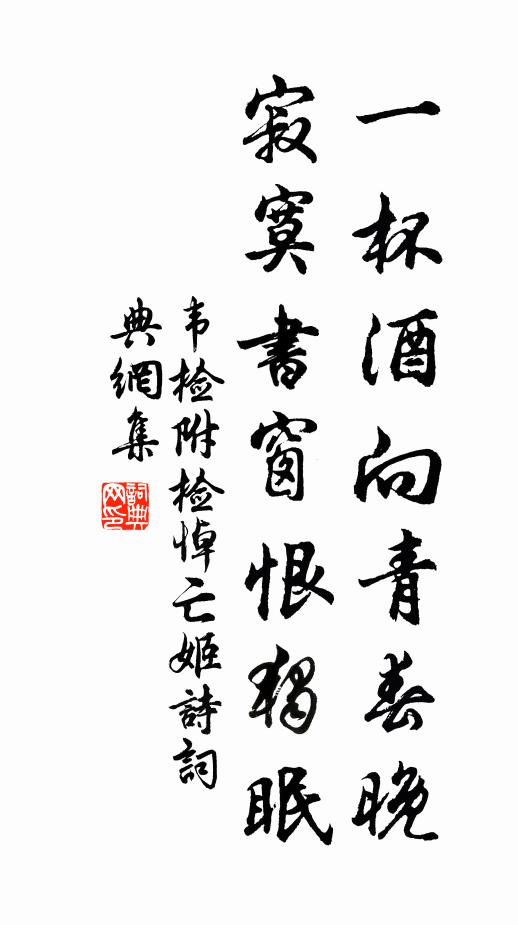 一杯酒向青春晚
寂寞書窗恨独眠
韦检附检悼亡姬詩詞
典網集
詞典网印